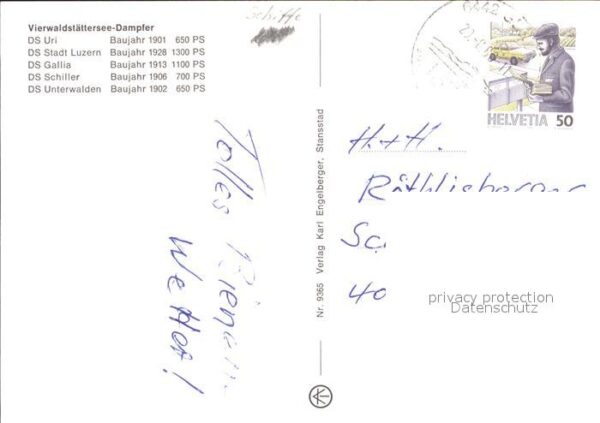 Schiffe
Vierwaldstättersee-Dampfer
DS Uri Baujahr 1901 650 PS
DS Stadt Luzern Baujahr 1928 1300 PS
DS Gallia Baujahr 1913 1100 PS
DS Schiller Baujahr 1906 700 PS
DS Unterwalden Baujahr 1902 650 PS
HELVETIA 50
Tolles
Wetter!
Nr. 9365 Verlag Karl Engelberger, Stansstad
H. + H.
Röthlisberger
40
privacy protection
Datenschutz